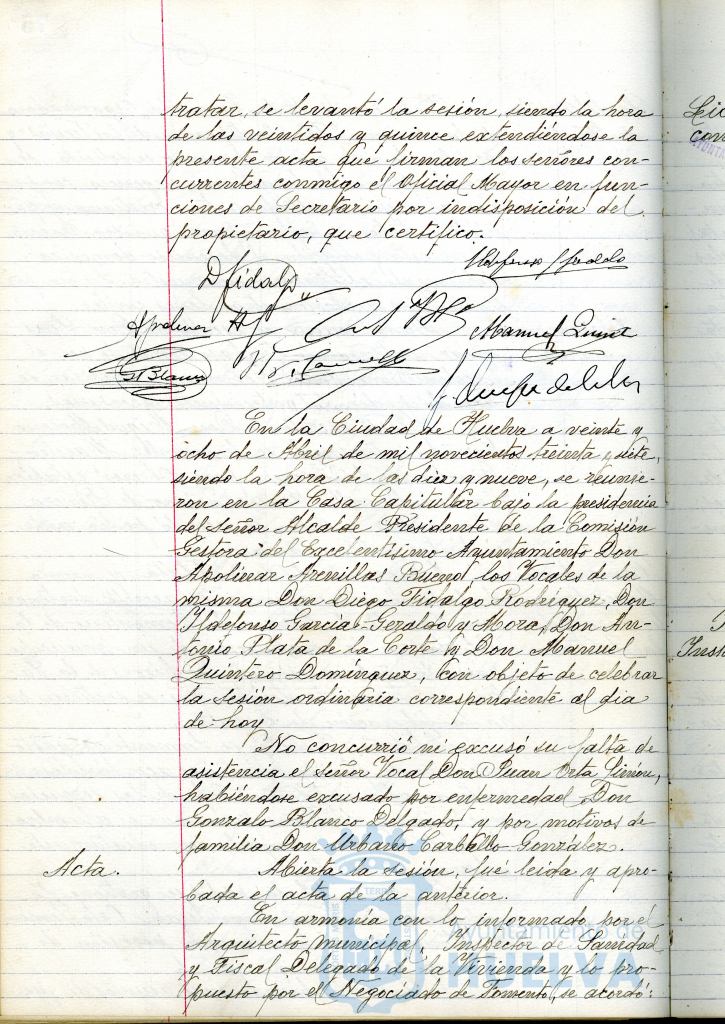 tratar, se levantó la sesión, siendo la hora
de las veintidos y quince extendiéndose la
presente acta que firman los señores con-
currentes conmigo el Oficial Mayor en fun-
ciones de Secretario por indisposición del
propietario, que certifico.
D Fidalgo
Manuel Quint
G Blanco
En la Ciudad de Huelva a veinte y
ocho de Abril de mil novecientos treinta y siete,
siendo la hora de las diez y nueve, se reunie-
ron en la Casa Capitular bajo la presidencia
del señor Alcalde Presidente de la Comisión
Gestora del Excelentísimo Ayuntamiento Don
Apolinar Arenillas Bueno, los Vocales de la
misma Don Diego Fidalgo Rodríguez, Don
Ildefonso García-Geraldo y Mora, Don An-
tonio Plata de la Corte y Don Manuel
Quintero Domínguez, con objeto de celebrar
la sesión ordinaria correspondiente al dia
de hoy
No concurrió ni excusó su falta de
asistencia el señor Vocal Don Juan Orta Limón,
habiéndose excusado por enfermedad Don
Gonzalo Blanco Delgado, y por motivos de
familia Don Urbano Carballo González.
Acta.
Abierta la sesión, fué leida y apro-
bada el acta de la anterior.
En armonía con lo informado por el
Arquitecto municipal, Inspector de Sanidad
y Fiscal Delegado de la Vivienda y lo pro-
puesto por el Negociado de Fomento, se acordó:
Ayuntamiento de
HUELVA